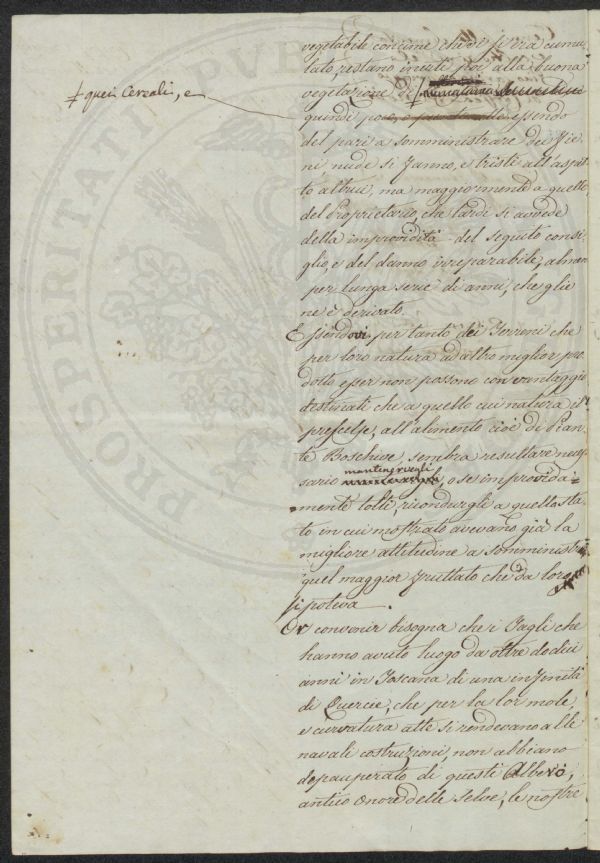 vegetabile concime che vi si era cumu-
lato, restano inetti poi alla buona
vegetazione di
‡ quei Cereali, e
quindi essendo
del pari a somministrare dei Fie-
ni, nude si fanno, e triste all'aspet-
to altrui, ma maggiormente a quello
del Proprietario, che tardi si avvede
della improvidità del seguito consi-
glio, e del danno irreparabile, almen
per lunga serie di anni, che glie
ne è derivato.
Essendovi per tanto dei Terreni che
per loro natura ad altro miglior pro-
dotto esser non possono con vantaggio
destinati che a quello cui natura il
prescelse, all'alimento cioè di Pian-
te Boschive, sembra resultare neces-
sario mantenervegli, o se improvida=
mente tolti ricondurgli a quello sta-
to in cui mostrato avevano già la
migliore attitudine a somministrar
quel maggior fruttato che da loro
si poteva.
Or convenir bisogna che i Tagli che
hanno avuto luogo da oltre dodici
anni in Toscana di una infinità
di Quercie, che per la lor mole,
e curvatura atte si rendevano alle
navali costruzioni, non abbiano
depauperato di questi Alberi,
antico Onore delle Selve, le nostre